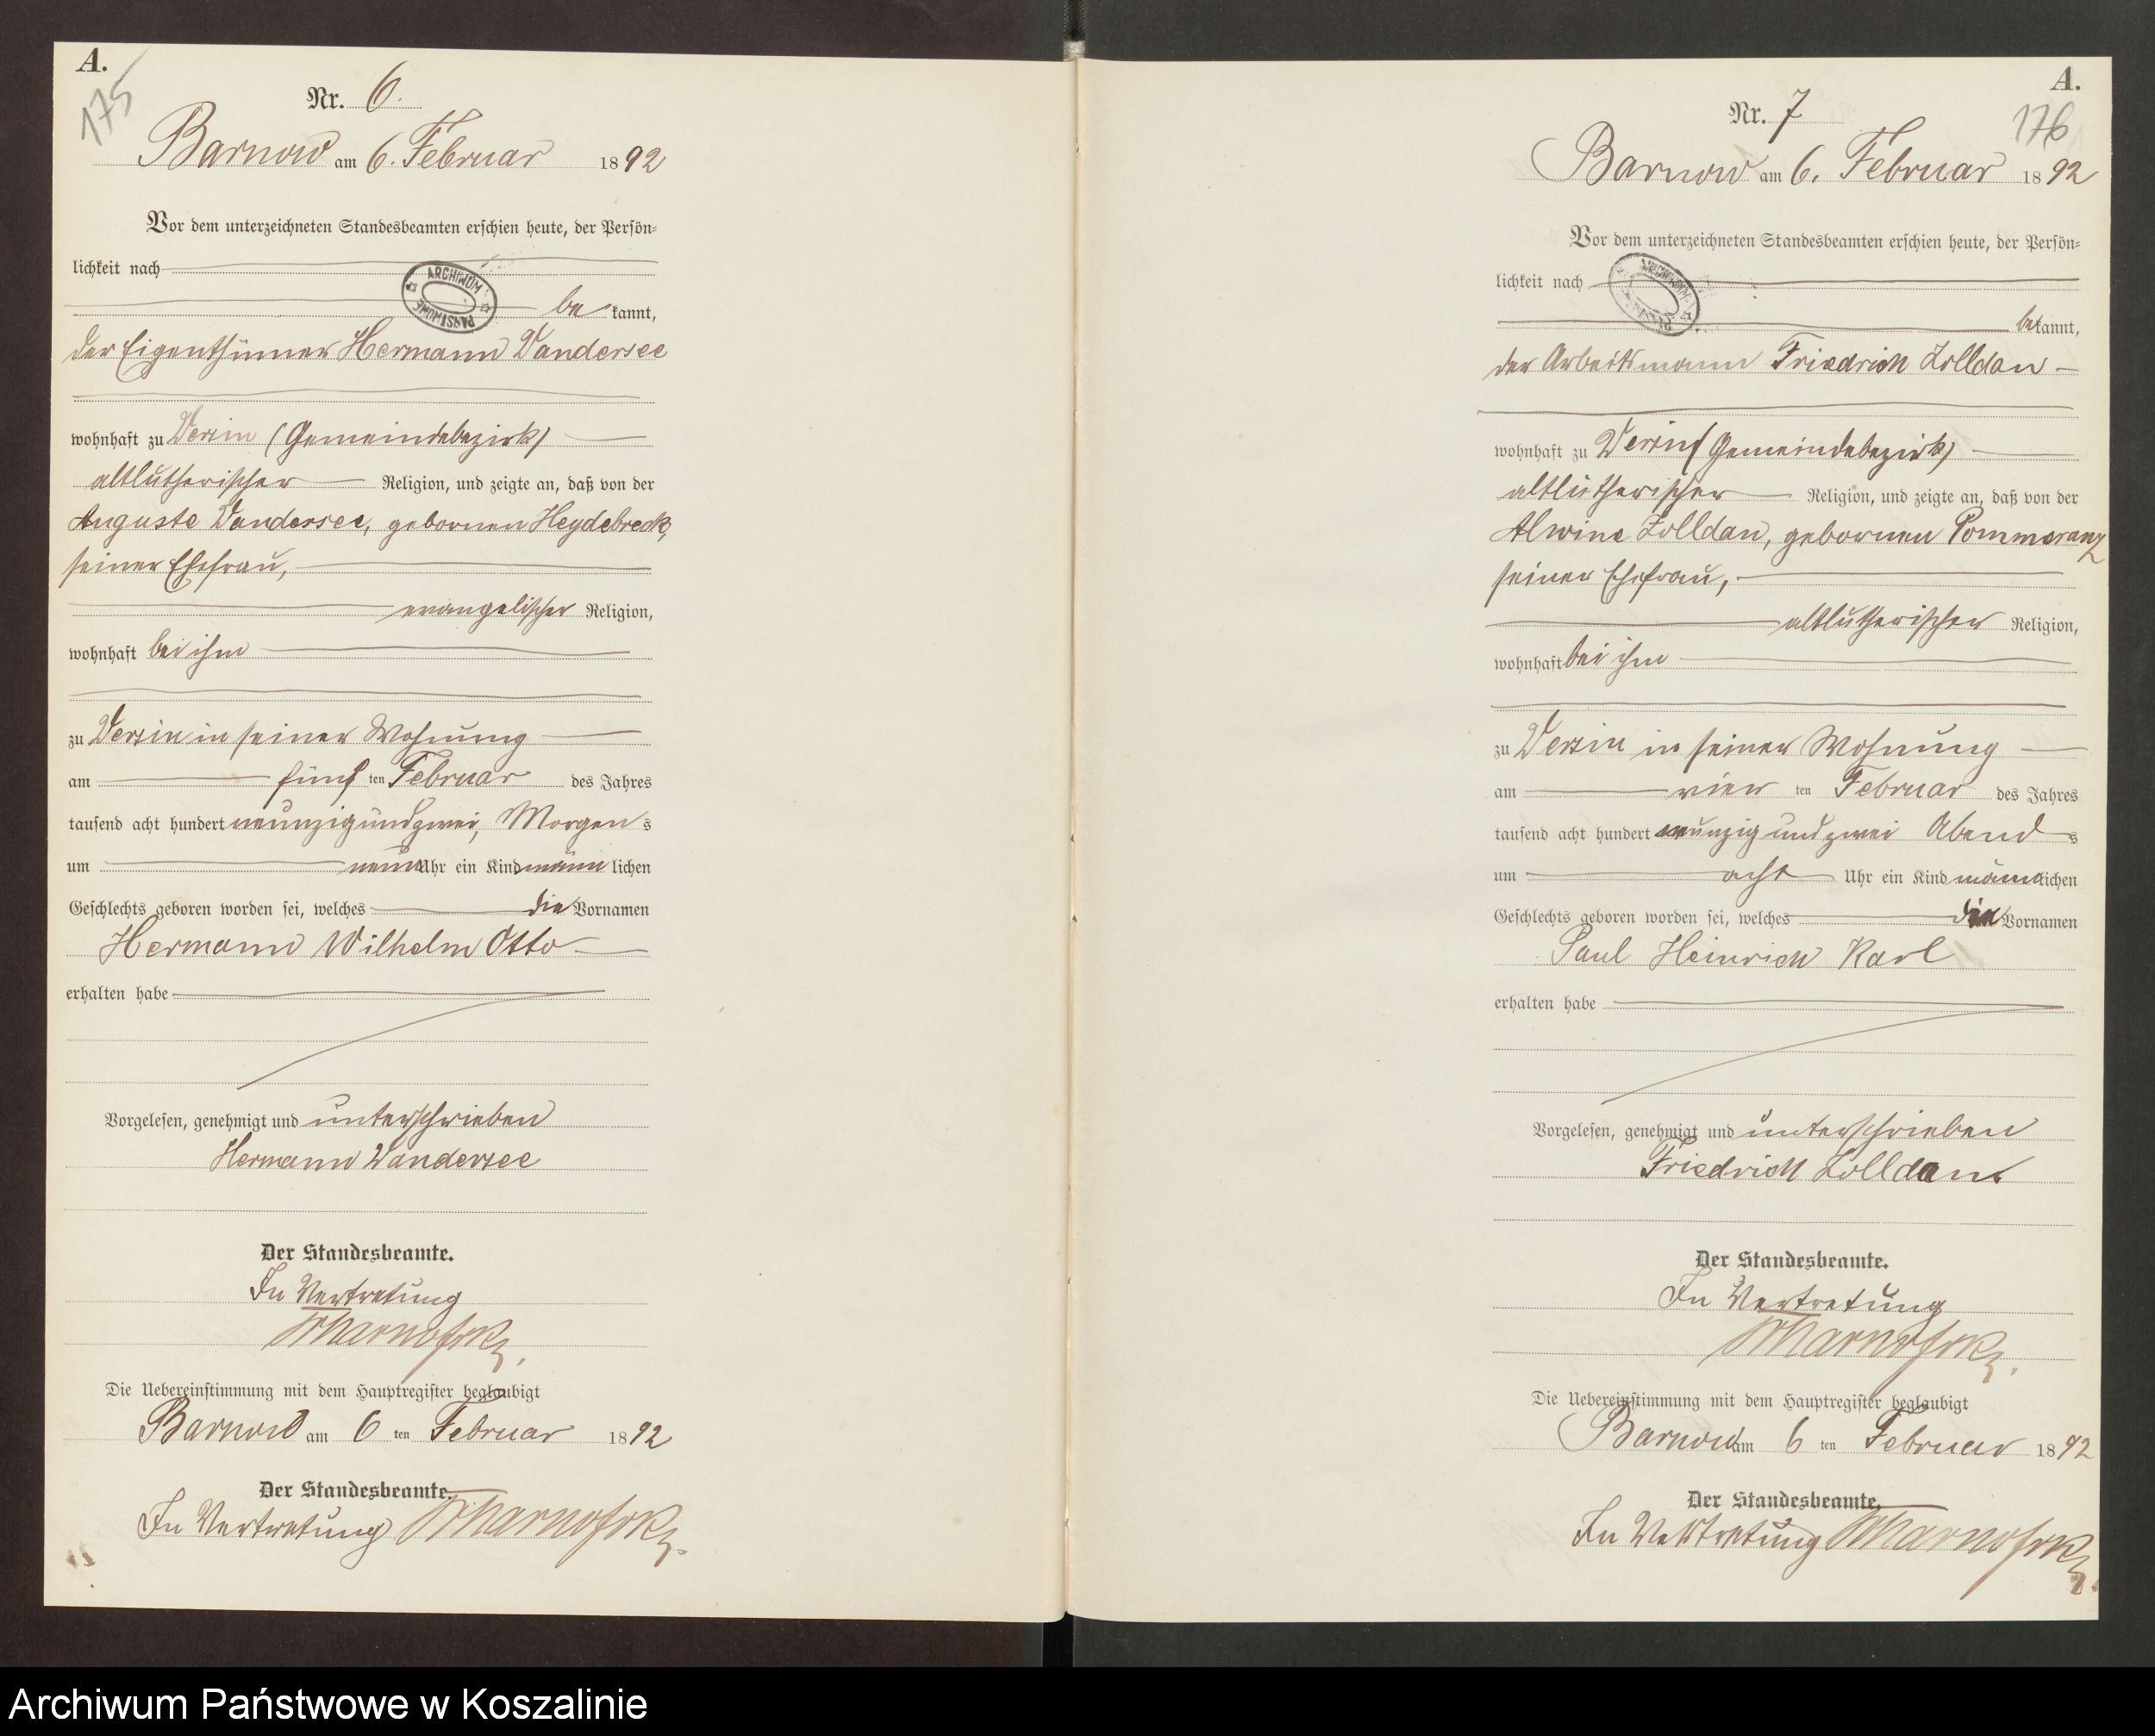 A.
175
Nr. 6.
Barnow am 6. Februar 1892
Vor dem unterzeichneten Standesbeamten erschien heute, der Persön=
lichkeit nach
ARCHIWUM PAŃSTWOWE
be kannt,
der Eigenthümer Hermann Wandersee
wohnhaft zu Versin (Gemeindebezirk)
altlutherischer Religion, und zeigte an, daß von der
Auguste Wandersee, gebornen Heydebreck,
seiner Ehefrau,
evangelischer Religion,
wohnhaft bei ihm
zu Versin in seiner Wohnung
am fünf ten Februar des Jahres
tausend acht hundert neunzig und zwei, Morgen s
um neun Uhr ein Kind männ lichen
Geschlechts geboren worden sei, welches die Vornamen
Hermann Wilhelm Otto
erhalten habe
Vorgelesen, genehmigt und unterschrieben
Hermann Wandersee
Der Standesbeamte.
In Vertretung
Die Uebereinstimmung mit dem Hauptregister beglaubigt
Barnow am 6 ten Februar 1892
Der Standesbeamte.
In Vertretung
A.
176
Nr. 7
Barnow am 6. Februar 1892
Vor dem unterzeichneten Standesbeamten erschien heute, der Persön=
lichkeit nach
ARCHIWUM
bekannt,
der Arbeitsmann Friedrich Zolldan
wohnhaft zu Versin (Gemeindebezirk)
altlutherischer Religion, und zeigte an, daß von der
Alwine Zolldan, gebornen Pommeranz
seiner Ehefrau,
altlutherischer Religion,
wohnhaft bei ihm
zu Versin in seiner Wohnung
am vier ten Februar des Jahres
tausend acht hundert neunzig und zwei Abend s
um acht Uhr ein Kind männlichen
Geschlechts geboren worden sei, welches die Vornamen
Paul Heinrich Karl
erhalten habe
Vorgelesen, genehmigt und unterschrieben
Friedrich Zolldan
Der Standesbeamte.
In Vertretung
Die Uebereinstimmung mit dem Hauptregister beglaubigt
Barnow am 6 ten Februar 1892
Der Standesbeamte.
In Vertretung
Archiwum Państwowe w Koszalinie